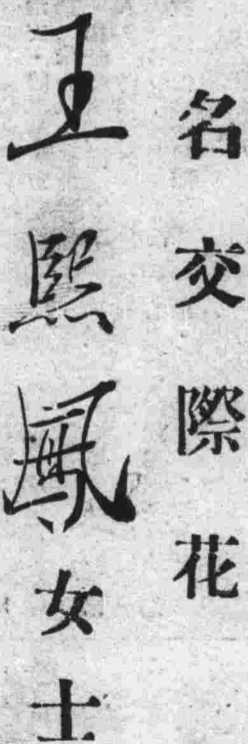 名交際花
王熙鳳女士